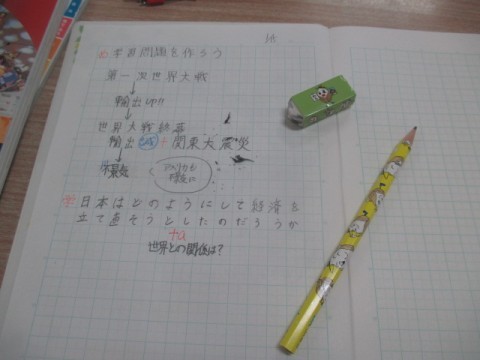 学習問題を作ろう
第一次世界大戦
輸出UP!!
世界大戦終幕
輸出 減 + 関東大震災
不景気
アメリカも
不況に
日本はどのようにして経済を
立て直そうとしたのだろうか
+α
世界との関係は?